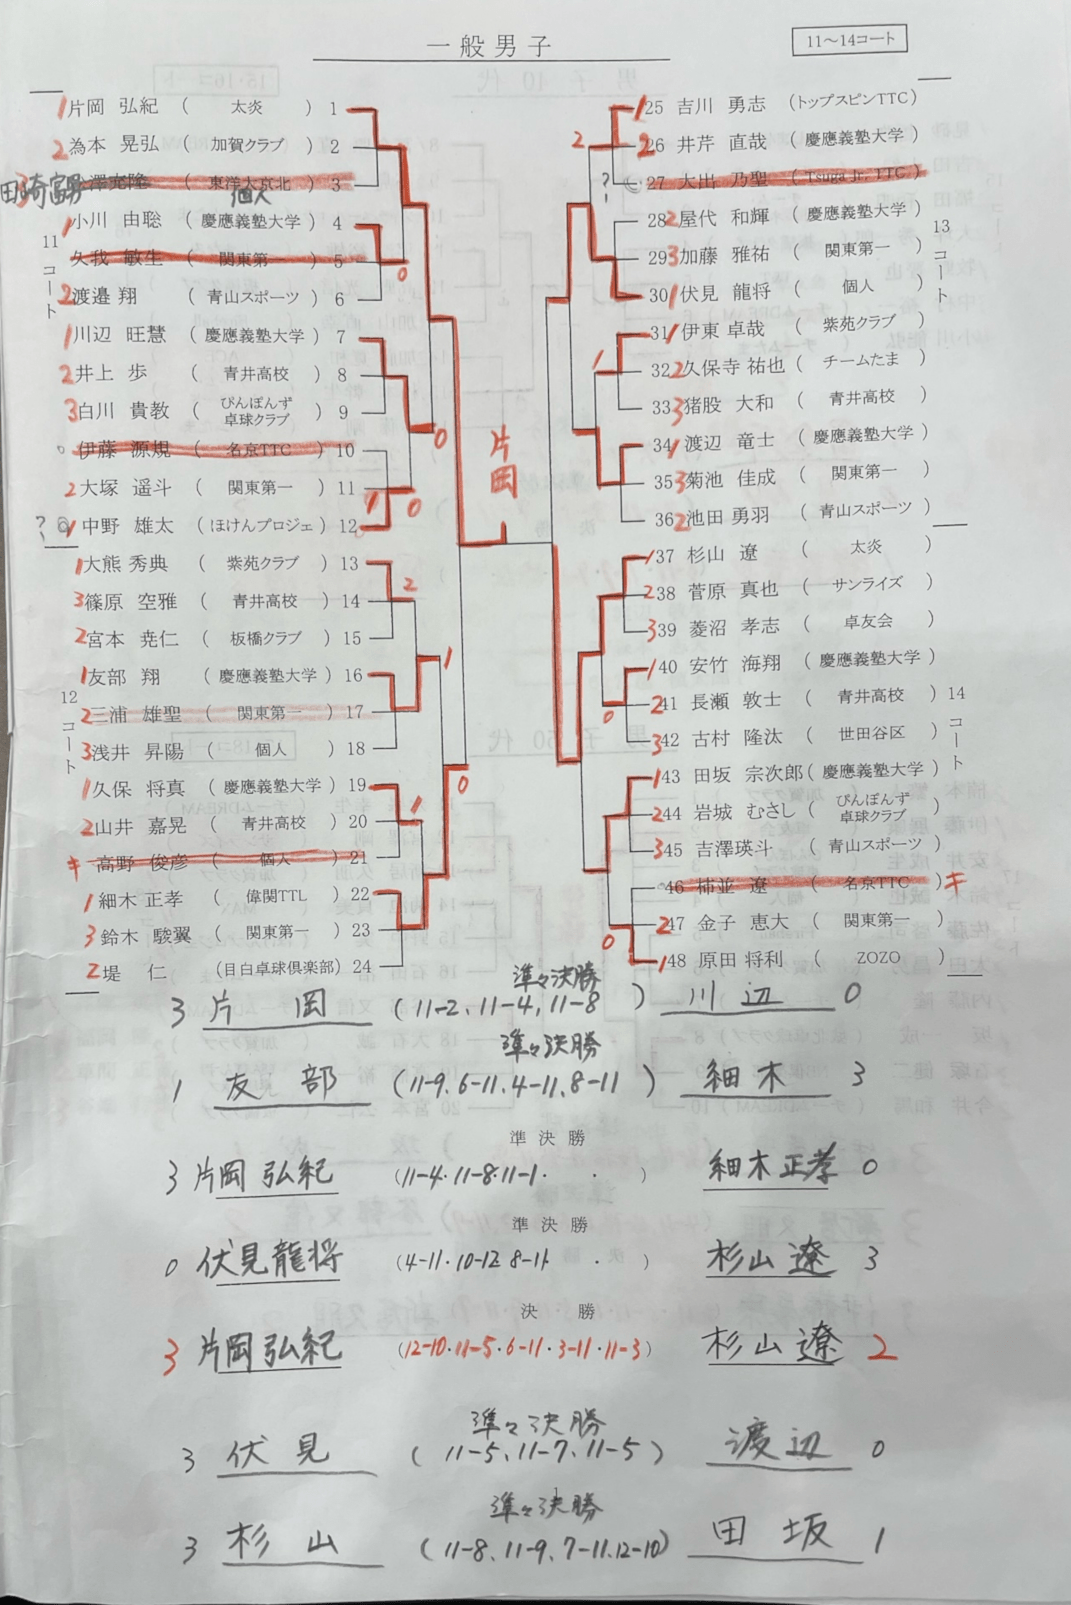 一般男子
11〜14コート
11コート
1 片岡 弘紀 ( 太炎 ) 1
2 為本 晃弘 ( 加賀クラブ ) 2
3 田崎富男 澤克隆 ( 東洋大京北 ) 3 個人
1 小川 由聡 ( 慶應義塾大学 ) 4
久我 敏生 ( 関東第一 ) 5
2 渡邉 翔 ( 青山スポーツ ) 6
1 川辺 旺慧 ( 慶應義塾大学 ) 7
2 井上 歩 ( 青井高校 ) 8
3 白川 貴教 ( ぴんぽんず卓球クラブ ) 9
伊藤 源規 ( 名京TTC ) 10
2 大塚 遥斗 ( 関東第一 ) 11
? 1 中野 雄太 ( ほけんプロジェ ) 12
12コート
1 大熊 秀典 ( 紫苑クラブ ) 13
3 篠原 空雅 ( 青井高校 ) 14
2 宮本 尭仁 ( 板橋クラブ ) 15
1 友部 翔 ( 慶應義塾大学 ) 16
2 三浦 雄聖 ( 関東第一 ) 17
3 浅井 昇陽 ( 個人 ) 18
1 久保 将真 ( 慶應義塾大学 ) 19
2 山井 嘉晃 ( 青井高校 ) 20
キ 高野 俊彦 ( 個人 ) 21
1 細木 正孝 ( 偉関TTL ) 22
3 鈴木 駿翼 ( 関東第一 ) 23
2 堤 仁 (目白卓球倶楽部) 24
0
0
1 0
2
1
1
0
片岡
13コート
1 25 吉川 勇志 (トップスピンTTC)
2 26 井芹 直哉 (慶應義塾大学)
? 27 大出 乃聖 ( Tsuga Jr. TTC )
28 2 屋代 和輝 (慶應義塾大学)
29 3 加藤 雅祐 ( 関東第一 )
30 1 伏見 龍将 ( 個人 )
31 1 伊東 卓哉 ( 紫苑クラブ )
32 2 久保寺 祐也 ( チームたま )
33 3 猪股 大和 ( 青井高校 )
34 1 渡辺 竜士 (慶應義塾大学)
35 3 菊池 佳成 ( 関東第一 )
36 2 池田 勇羽 ( 青山スポーツ )
14コート
1 37 杉山 遼 ( 太炎 )
2 38 菅原 真也 ( サンライズ )
3 39 菱沼 孝志 ( 卓友会 )
1 40 安竹 海翔 (慶應義塾大学)
2 41 長瀬 敦士 ( 青井高校 )
3 42 古村 隆汰 ( 世田谷区 )
1 43 田坂 宗次郎 ( 慶應義塾大学 )
2 44 岩城 むさし ( ぴんぽんず卓球クラブ )
3 45 吉澤瑛斗 ( 青山スポーツ )
46 柿並 遼 ( 名京TTC ) キ
2 47 金子 恵大 ( 関東第一 )
1 48 原田 将利 ( ZOZO )
2
1
0
0
準々決勝
3 片岡 ( 11-2、11-4、11-8 ) 川辺 0
準々決勝
1 友部 (11-9、6-11、4-11、8-11 ) 細木 3
準決勝
3 片岡 弘紀 (11-4・11-8・11-1・ ・ ) 細木正孝 0
準決勝
0 伏見龍将 (4-11・10-12 8-11 ・ ) 杉山 遼 3
決勝
3 片岡弘紀 (12-10・11-5・6-11・3-11・11-3) 杉山 遼 2
準々決勝
3 伏見 ( 11-5、11-7、11-5 ) 渡辺 0
準々決勝
3 杉山 ( 11-8、11-9、7-11、12-10) 田坂 1